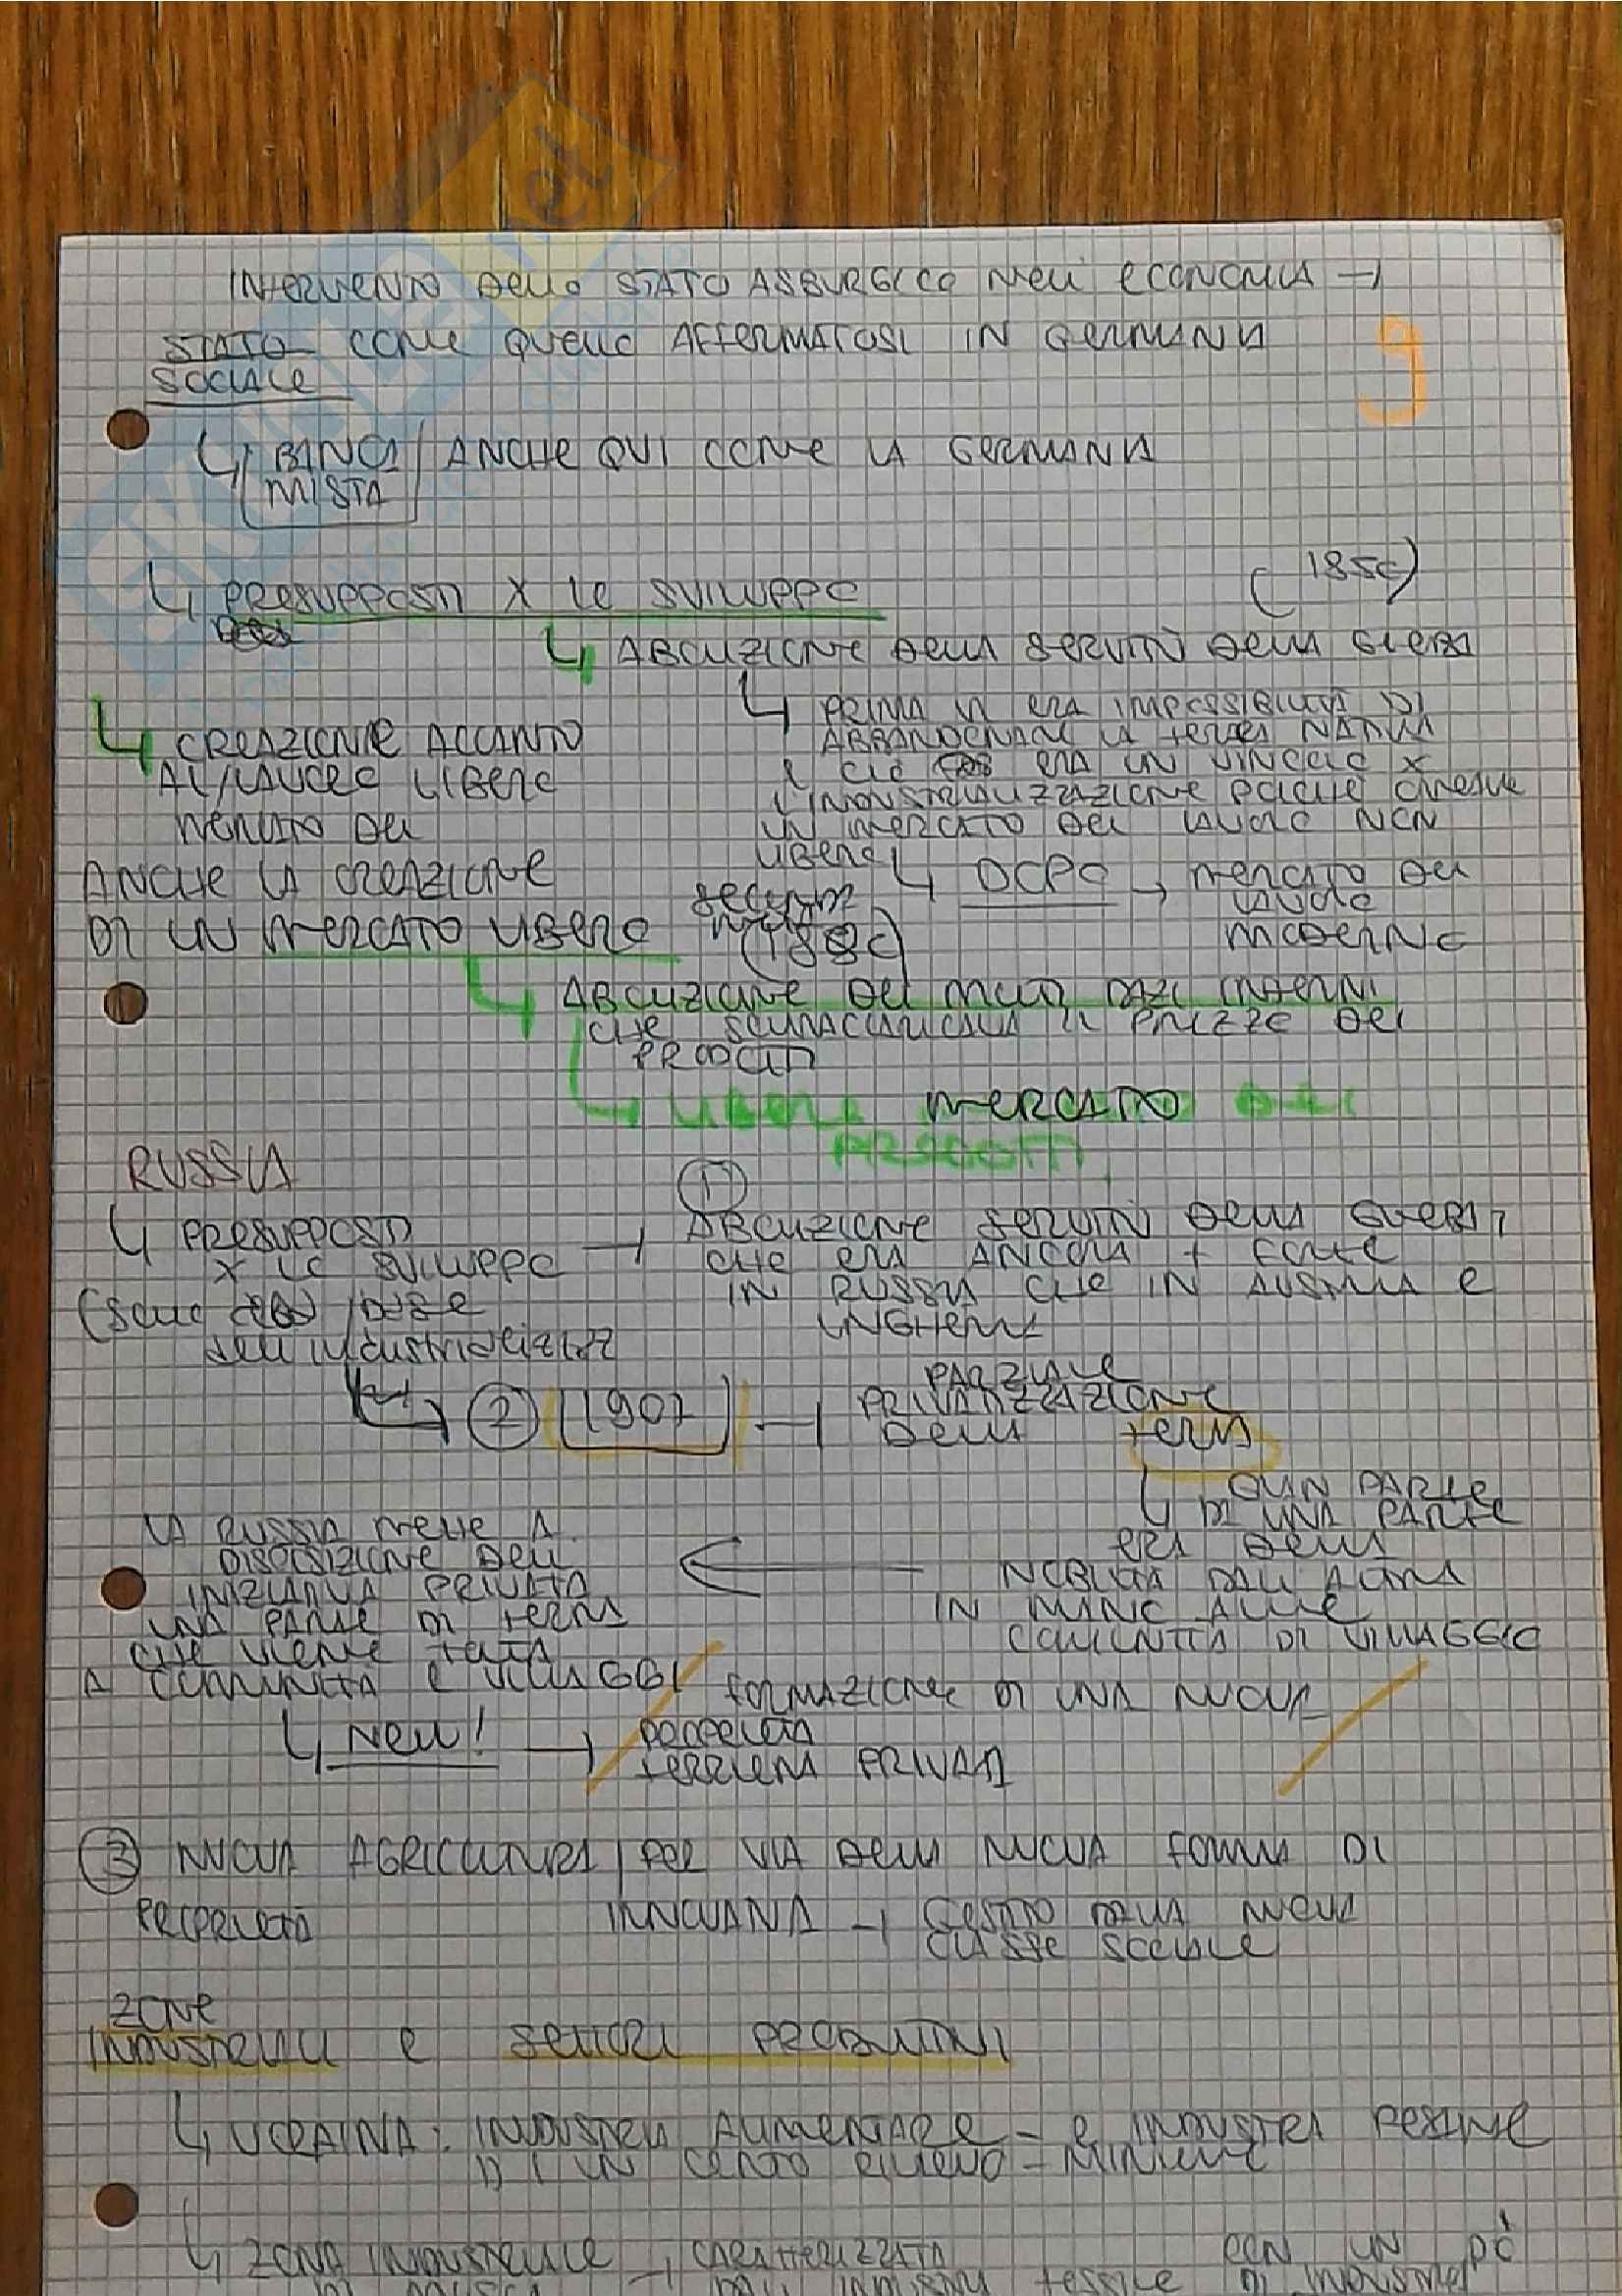 INTERVENTO DELLO STATO ASBURGICO NELL' ECONOMIA →
STATO COME QUELLO AFFERMATOSI IN GERMANIA
SOCIALE
9
↳ BANCA ANCHE QUI COME LA GERMANIA
MISTA
↳ PRESUPPOSTI X LO SVILUPPO
(1850)
↳ ABOLIZIONE DELLA SERVITÙ DELLA GLEBA
↳ PRIMA VI ERA IMPOSSIBILITÀ DI
ABBANDONARE LA TERRA NATIVA
E CIÒ ERA UN VINCOLO X
L'INDUSTRIALIZZAZIONE POICHÈ
UN MERCATO DEL LAVORO NON
LIBERO
↳ DOPO → MERCATO DEL
LAVORO
MODERNO
↳ CREAZIONE ACCANTO
AL LAVORO LIBERO
MERCATO DEL
ANCHE LA CREAZIONE
DI UN MERCATO LIBERO
(1880)
↳ ABOLIZIONE DEI MOLTI DAZI INTERNI
CHE IL PREZZO DEI
PRODOTTI
↳ LIBERO MERCATO DEI
PRODOTTI
RUSSIA
↳ PRESUPPOSTI →
X LO SVILUPPO
1)
ABOLIZIONE SERVITÙ DELLA GLEBA,
CHE ERA ANCORA + FORTE
IN RUSSIA CHE IN AUSTRIA E
UNGHERIA
dell'industrializzaz
↳ 2 1907 → PARZIALE
PRIVATIZZAZIONE
DELLA terra
↳ PARTE
DI UNA PARTE
ERA DELLA
NOBILTÀ DALL'ALTRA
IN MANO ALLE
COMUNITÀ DI VILLAGGIO
LA RUSSIA METTE A
DISPOSIZIONE DELL
INIZIATIVA PRIVATA
UNA PARTE DI TERRA
CHE VIENE TOLTA
A COMUNITÀ E VILLAGGI
↳ NEW! → FORMAZIONE DI UNA NUOVA
PROPRIETÀ
TERRIERA PRIVATA
3 NUOVA AGRICOLTURA PER VIA DELLA NUOVA FORMA DI
PROPRIETÀ INNOVATIVA → DALLA NUOVA
CLASSE SOCIALE
ZONE
INDUSTRIALI E SETTORI PRODUTTIVI
↳ UCRAINA: INDUSTRIA ALIMENTARE - E INDUSTRIA PESANTE
DI UN CERTO RILIEVO - MINIERE
↳ ZONA INDUSTRIALE → CARATTERIZZATA CON UN PÒ
DI MOSCA DALL'INDUSTRIA TESSILE DI INDUSTRIA